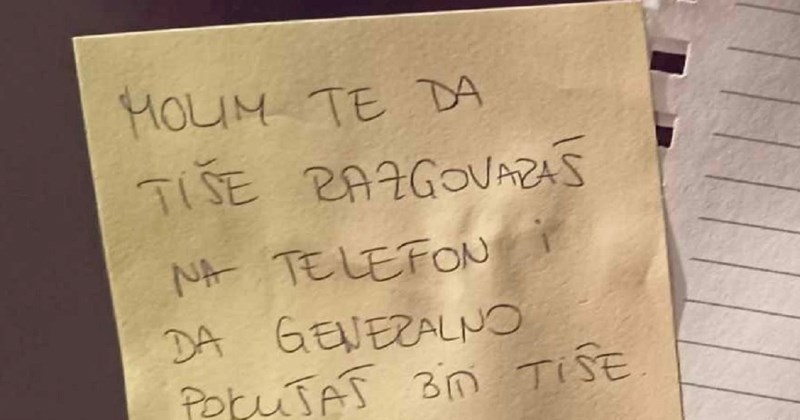 MOLIM TE DA
TIŠE RAZGOVARAŠ
NA TELEFON i
DA GENERALNO
POKUŠAŠ BITI TIŠE.